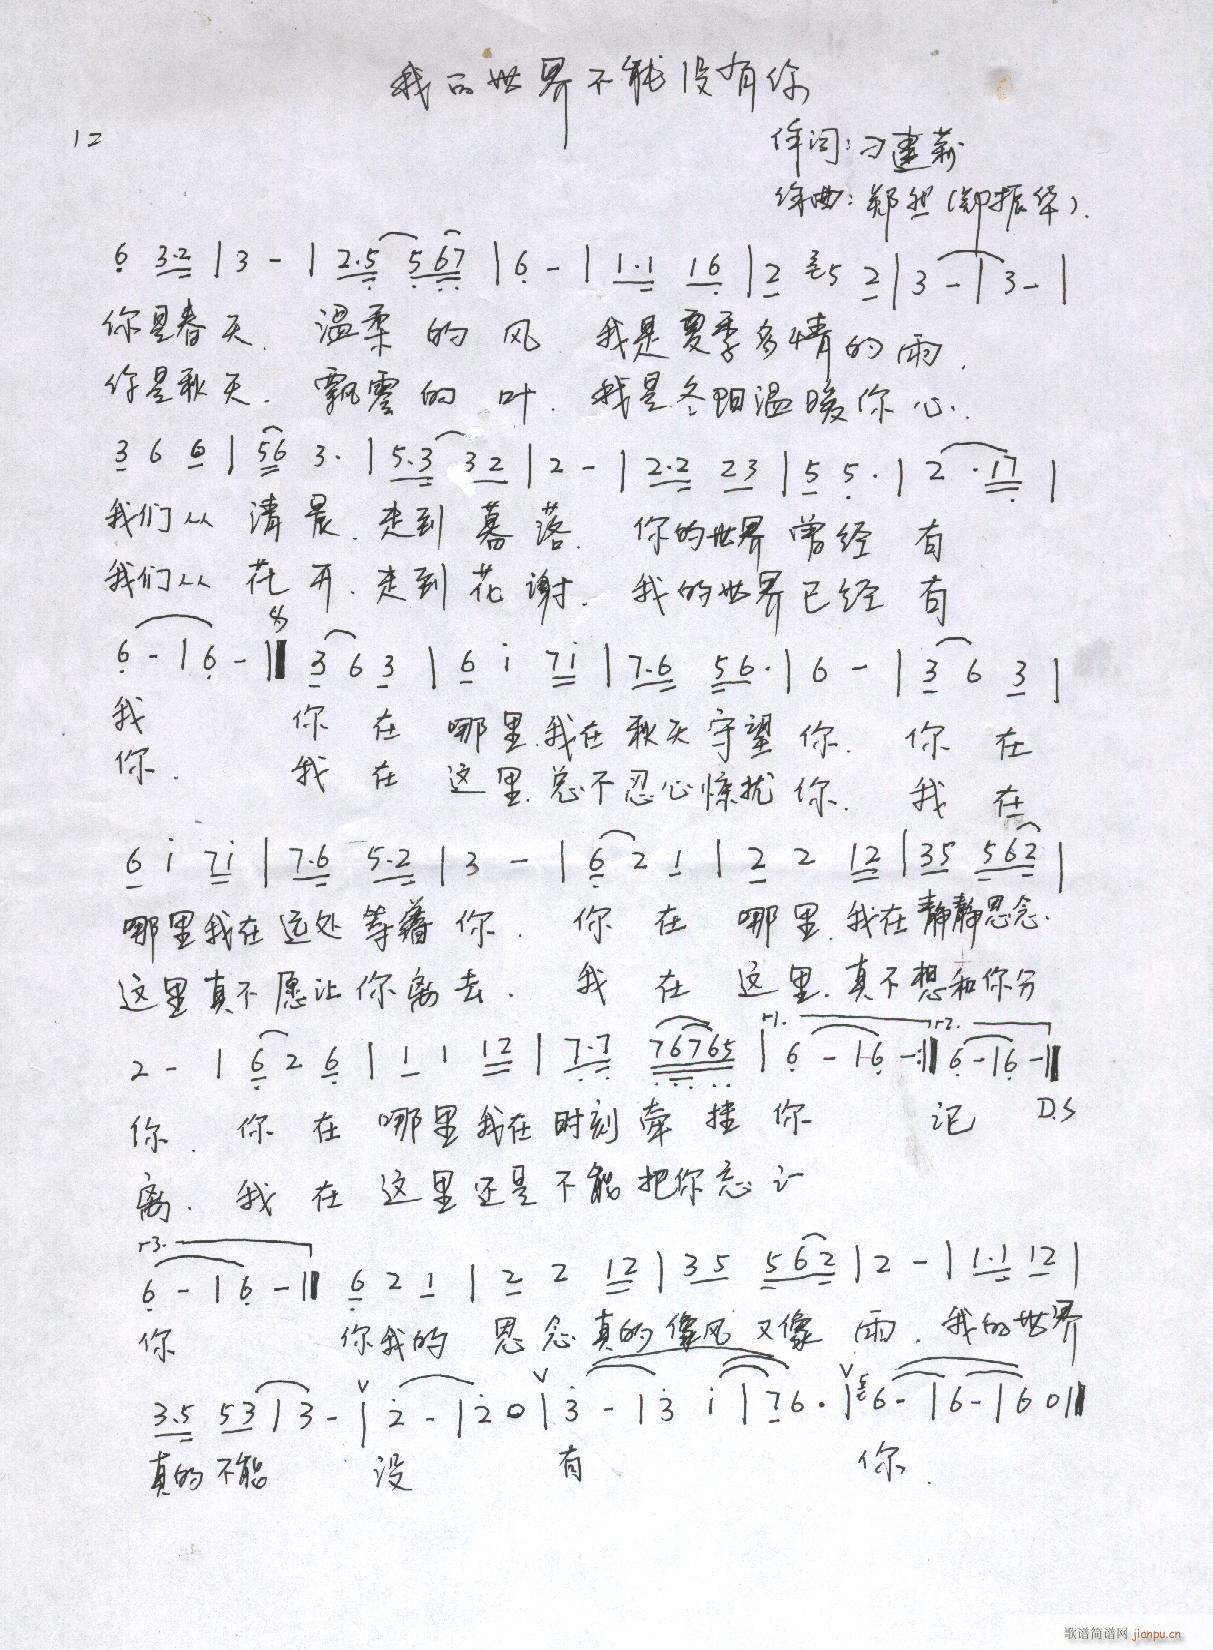 我的世界不能没有你
12
作词：刁建莉
作曲：郑然（郑振华）.
6 3·2 | 3 - | 2·5 5 67 | 6 - | 1·1 16 | 2 5 2 | 3 - | 3 - |
你是春天. 温柔的风. 我是夏季多情的雨.
你是秋天. 飘零的叶. 我是冬阳温暖你心.
3 6 6 | 56 3· | 5·3 32 | 2 - | 2·2 23 | 5 5· | 2 ·17 |
我们从清晨. 走到暮落. 你的世界曾经有
我们从花开. 走到花谢. 我的世界已经有
6 - | 6 - || 3 6 3 | 6 i 7i | 7·6 56· | 6 - | 3 6 3 |
我 你在哪里.我在秋天守望你. 你在
你. 我在这里.总不忍心惊扰你. 我在
6 i 7i | 7·6 5·2 | 3 - | 6 2 1 | 2 2 12 | 35 562 |
哪里我在远处等着你. 你在哪里.我在静静思念.
这里真不愿让你离去. 我在这里.真不想和你分
r1. r2.
2 - | 6 2 6 | 1 1 12 | 7·7 76765 | 6 - | 6 - :|| 6 - | 6 - ||
你. 你在哪里我在时刻牵挂你 记 D.S
离. 我在这里还是不能把你忘记
r3.
6 - | 6 - || 6 2 1 | 2 2 12 | 35 562 | 2 - | 1·1 12 |
你 你我的思念真的像风又像雨. 我的世界
3·5 53 | 3 - | 2 - | 2 0 | 3 - | 3 i | 76· | 6 - | 6 - | 6 0 ||
真的不能没有你.
歌谱简谱网 jianpu.cn